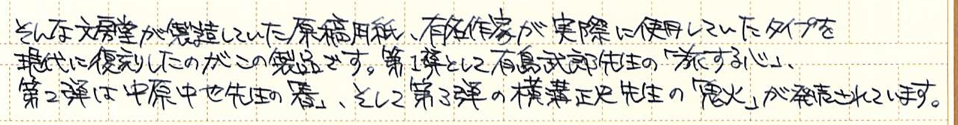 そんな文房堂が製造していた原稿用紙、有名作家が実際に使用していたタイプを
現代に復刻したのがこの製品です。第1弾として有島武郎先生の「旅する心」、
第2弾は中原中也先生の「春」、そして第3弾の横溝正史先生の「鬼火」が発売されています。